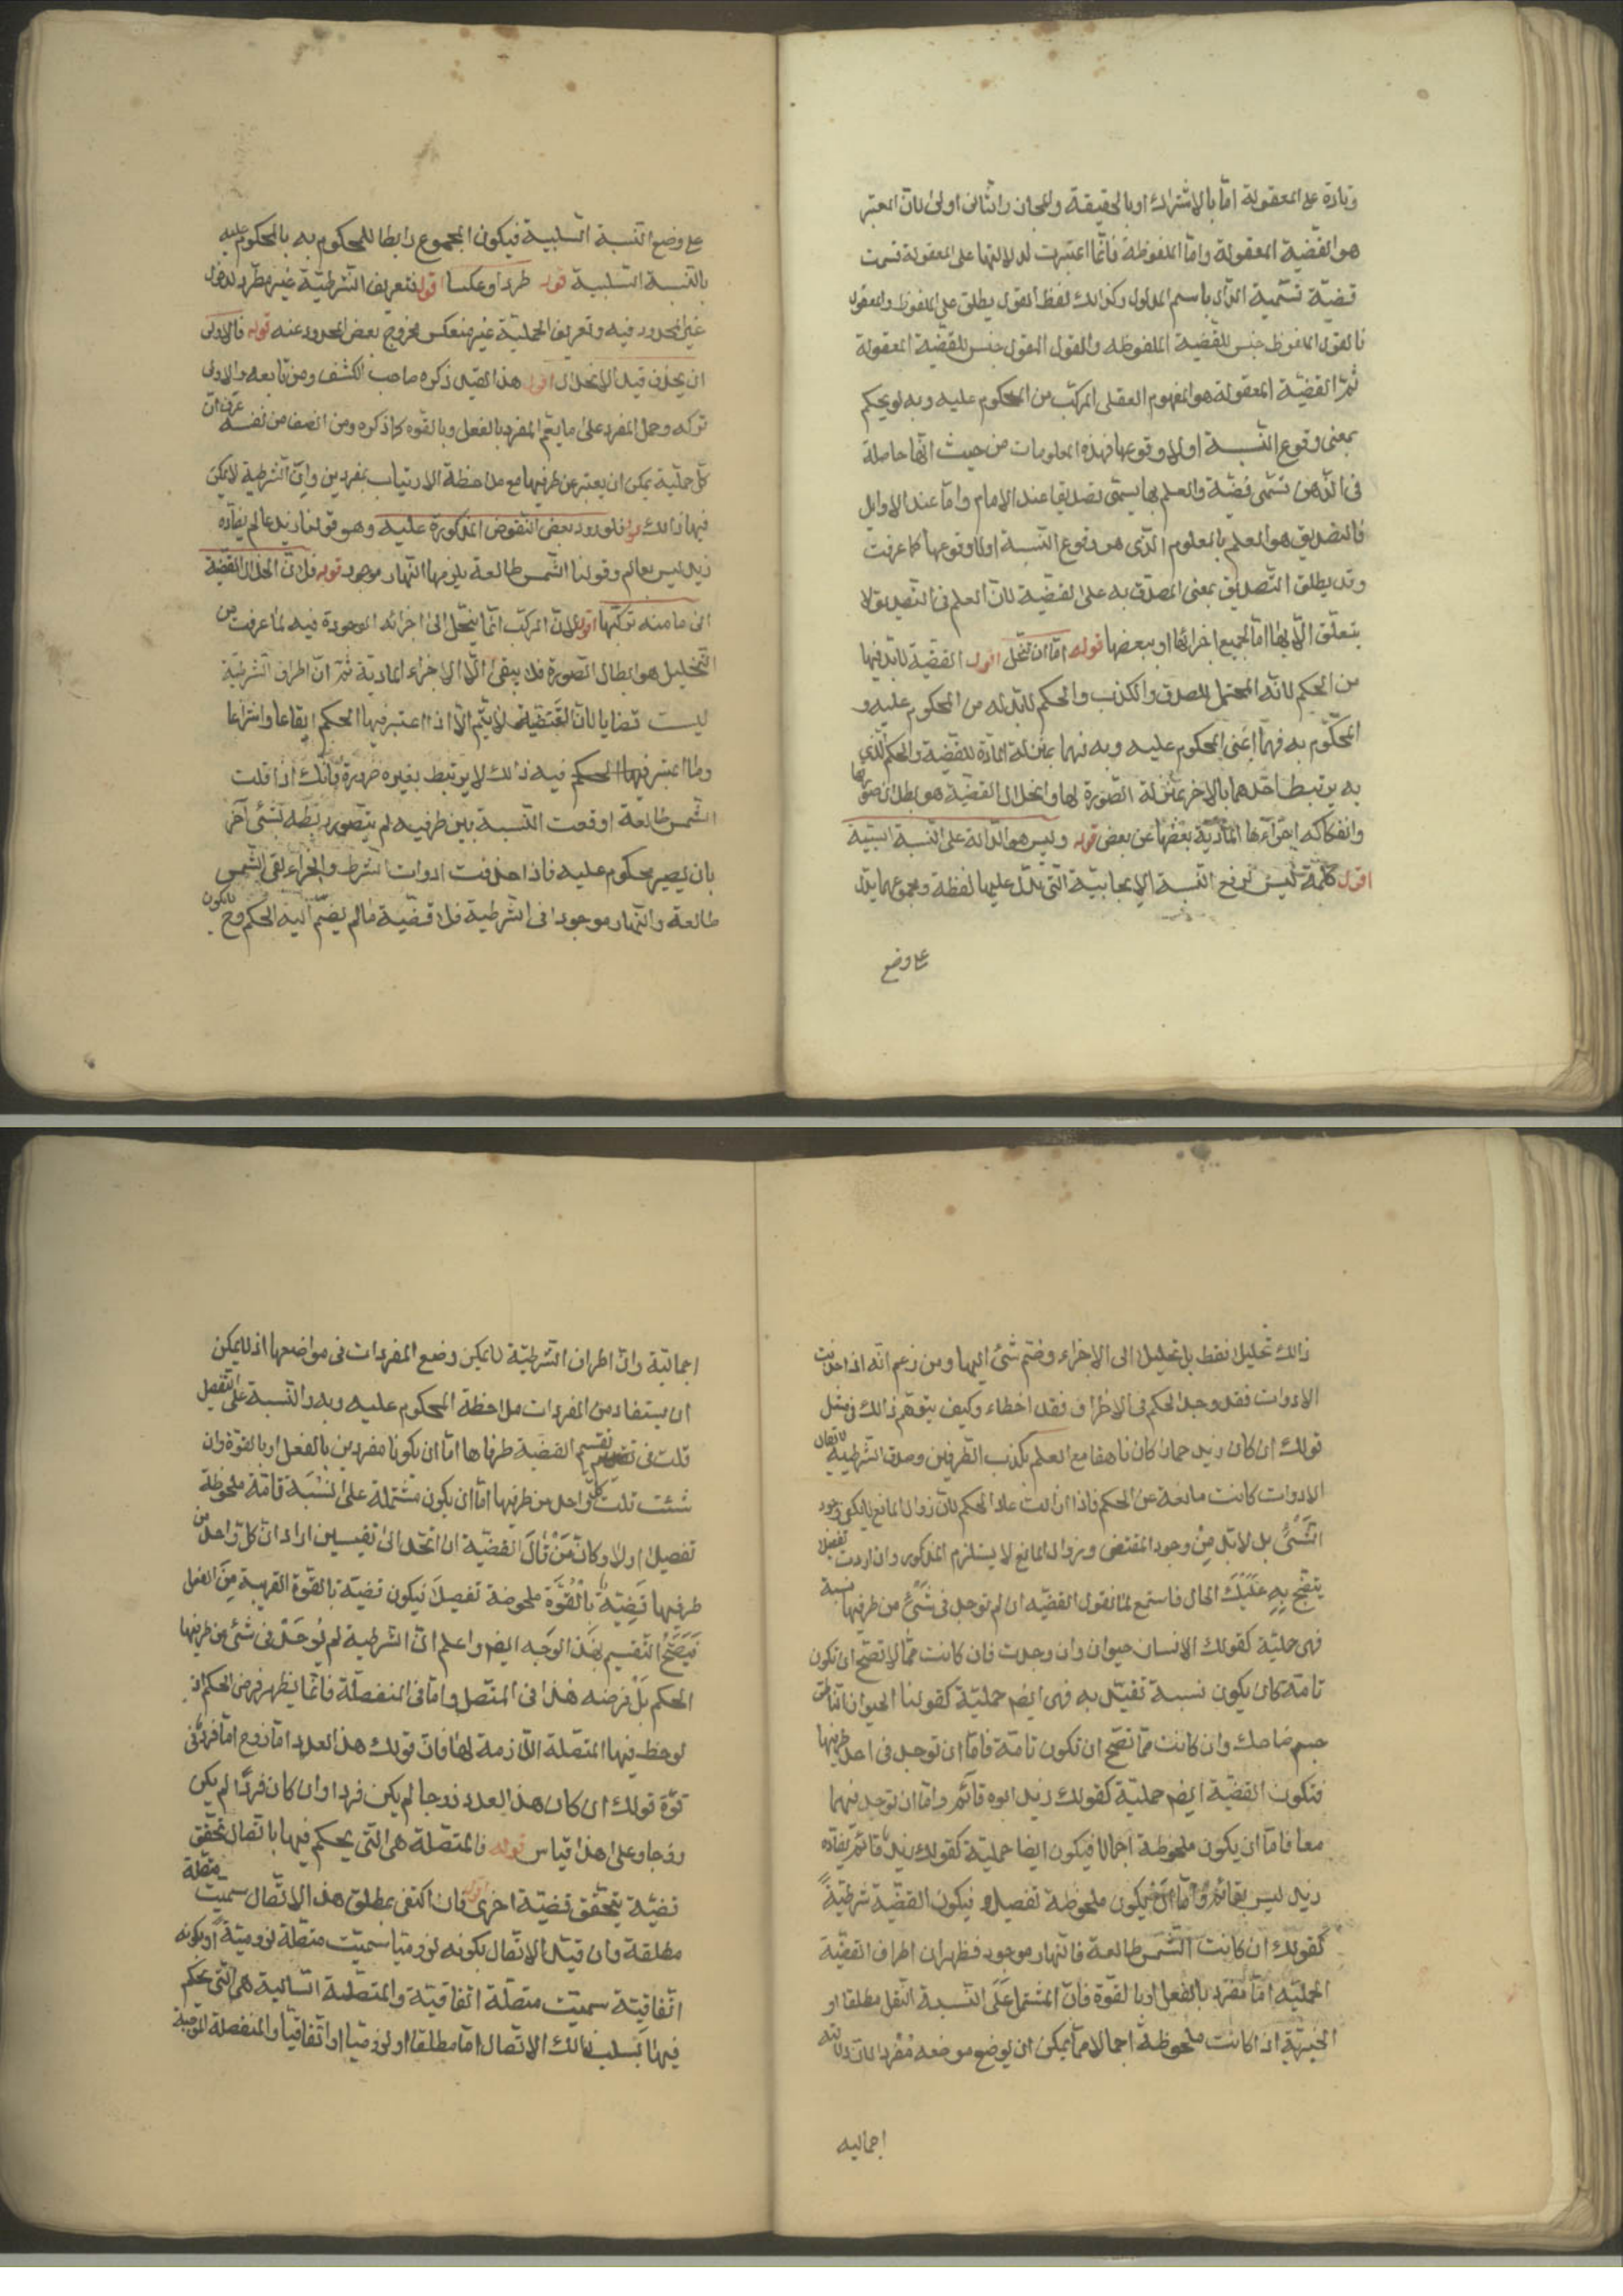 وتارة على المعقولة اما بالاشتراك او بالحقيقة والمجاز والثانى اولى لان المعتبر
هو القضية المعقولة واما الملفوظة فانما اعتبرت لدلالتها على المعقولة فسميت
قضية تسمية الدال باسم المدلول وكذالك لفظ القول يطلق على الملفوظ والمعقول
فالقول الملفوظ جنس للقضية الملفوظه والقول المعقول جنس للقضية المعقولة
ثم القضية المعقولة هو المفهوم العقلى المركب من المحكوم عليه وبه والحكم
بمعنى وقوع النسبة او لا وقوعها فهذه المعلومات من حيث انها حاصلة
فى الذهن تسمى قضية والعلم بها يسمى تصديقا عند الامام واما عند الاوايل
فالتصديق هو العلم بالمعلوم الذى هو وقوع النسبة او لا وقوعها كما عرفت
وقد يطلق التصديق بمعنى المصدق به على القضية لان العلم فى التصديق لا
يتعلق الا بها اما بجميع اجزائها او ببعضها قوله اما ان تنحل اقول القضية لابد فيها
من الحكم لانه المحتمل للصدق والكذب والحكم لابد له من المحكوم عليه و
المحكوم به فهما اعنى المحكوم عليه وبه فهما بمنزلة المادة للقضية والحكم الذى
به يرتبط احدهما بالاخر بمنزلة الصورة لها وانحلال القضية هو بطلان صورتها
وانفكاكه اجزاءها المادية بعضها عن بعض قوله وليس هو الدالة على النسبة السلبية
اقول كلمة ليس لرفع النسبة الايجابية التى تدل عليها لفظة ومجموعهما يدل
على وضع
على وضع النسبة السلبية فيكون المجموع رابطا للمحكوم به بالمحكوم عليه
بالنسبة السلبية قوله طردا وعكسا اقول فتعريف الشرطية غير مطرد لدخول
غير المحدود فيه وتعريف الحملية غير منعكس لخروج بعض المحدود عنه قوله فالاولى
ان يحذف قيد الانحلال اقول هذا القيد ذكره صاحب الكشف ومن تابعه والاولى
تركه وحمل المفرد على ما يعم المفرد بالفعل وبالقوه كما ذكره ومن انصف من نفسه عرف ان
كل حملية يمكن ان يعتبر عن طرفيها مع ملاحظة الارتباط بمفردين وان الشرطية لا يمكن
فيها ذالك قوله فلورود بعض النقوض المذكورة عليه وهو قولنا زيد عالم يضاده
زيد ليس بعالم وقولنا الشمس طالعة يلزمها النهار موجود قوله فلان انحلال القضية
الى ما منه تركبها اقول لان المركب انما ينحل الى اجزائه الموجودة فيه لما عرفت من
التحليل هو ابطال الصورة فلا يبقى الا الاجزاء المادية ثم ان اطراف الشرطية
ليست قضايا لان القضية لا يتم الا اذا اعتبر فيها الحكم ايقاعا وانتزاعا
وما اعتبر فيها الحكم فيه ذالك لا يرتبط بغيره ضرورة فانك اذا قلت
الشمس طالعة اوقعت النسبة بين طرفيه لم يتصور ربطه بشئ آخر
بان يصير محكوم عليه فاذا حذفت ادوات الشرط والجزاء لقى الشمس
طالعة والنهار موجودا فى الشرطية فلا قضية مالم يضم اليه الحكم وح لا يكون
ذالك تحليلا فقط بل تحليل الى الاجزاء وضم شئ اليها ومن زعم انه اذا حذفت
الادوات فقد وجد الحكم فى الاطراف فقد اخطاء وكيف يتوهم ذالك فى مثل
قولك ان كان زيد حمارا كان ناهقا مع العلم بكذب الطرفين وصدق الشرطية لا يقال
الادوات كانت مانعة عن الحكم فاذا ازالت عاد الحكم لان زوال المانع لا يكفى فى وجود
الشئ بل لابد من وجود المقتضى وزوال المانع لا يستلزم المذكور وان اردت تفصيلا
يتضح به عليك الحال فاستمع لما نقول القضيه ان لم توجد فى شئ من طرفيها نسبة
فهى حملية كقولك الانسان حيوان وان وجدت فان كانت مما لا تصح ان تكون
تامة كان يكون نسبة تقييديه فهى ايضا حملية كقولنا الحيوان الناطق
جسم ضاحك وان كانت مما تصح ان تكون تامة فاما ان توجد فى احد طرفيها
فتكون القضية ايضا حملية كقولك زيد ابوه قائم واما ان توجد فيهما
معا فاما ان يكون ملحوظة اجمالا فيكون ايضا حملية كقولك زيد قائم يضاده
زيد ليس بقائم واما ان يكون ملحوظة تفصيلا فيكون القضية شرطية
كقولك ان كانت الشمس طالعة فالنهار موجود فظهر ان اطراف القضية
الحملية اما مفرد بالفعل او بالقوة فان المشتمل على النسبة التقييدية مطلقا او
الخبرية اذا كانت ملحوظة اجمالا مما يمكن ان يوضع موضعه مفرد لان دلالته
اجماليه
اجمالية وان اطراف الشرطية لا يمكن وضع المفردات فى مواضعها اذ لا يمكن
ان يستفاد من المفردات ملاحظة المحكوم عليه وبه والنسبة على التفصيل
قلت فى تقسيم القضية طرفاها اما ان يكونا مفردين بالفعل او بالقوة وان
شئت قلت كل واحد من طرفيها اما ان يكون مشتملة على نسبة تامة ملحوظة
تفصيلا او لا وكان من قال القضية ان انحلت الى قضيتين اراد ان كل واحد من
طرفيها قضية بالقوة ملحوضة تفصيلا فيكون قضية بالقوة القريبة من الفعل
فيصح التقسيم بهذا الوجه ايضا واعلم ان الشرطية لم يوجد فى شئ من طرفيها
الحكم بل فرضه هذا فى المتصل واما فى المنفصلة فانما يظهر فرض الحكم اذ
لوحظ فيها المتصلة اللازمة لها فان قولك هذا العدد اما زوج اما فرد فى
قوة قولك ان كان هذا العدد زوجا لم يكن فردا وان كان فردا لم يكن
زوجا وعلى هذا قياس قوله فالمتصلة هى التى يحكم فيها باتصال تحقق
قضية بتحقق قضية اخرى اقول فان اكتفى بمطلق هذا الاتصال سميت متصلة
مطلقة وان قيد الاتصال بكونه لزوميا سميت متصلة لزومية او بكونه
اتفاقية سميت متصلة اتفاقية والمتصلة السالبة هى التى يحكم
فيها بسلب ذالك الاتصال اما مطلقا او لزوميا او اتفاقيا والمنفصلة الموجبة